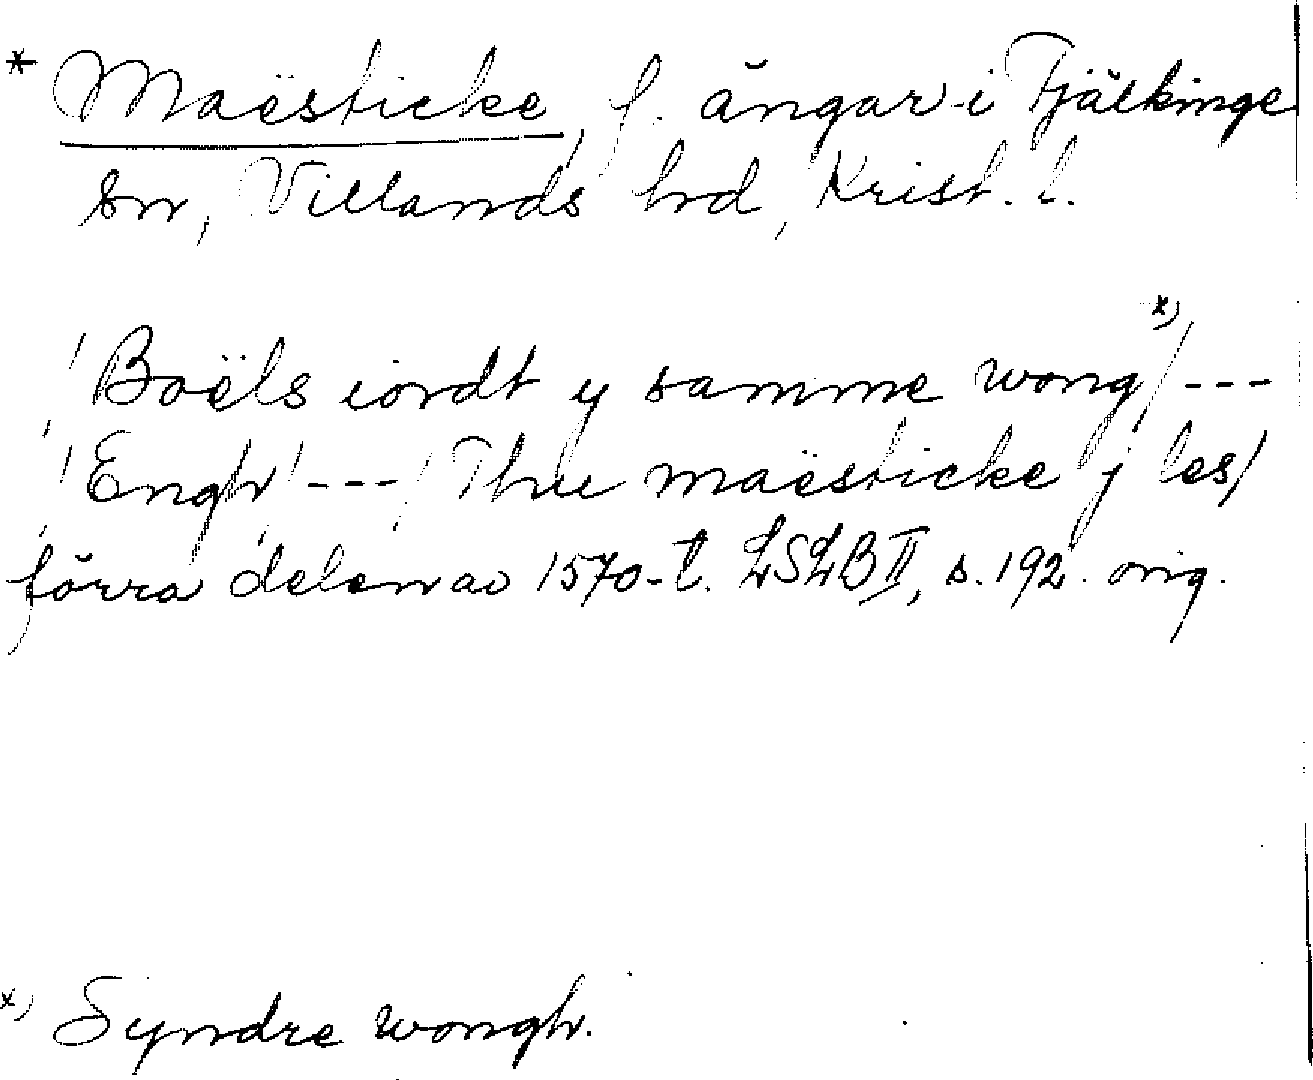 * Maësticke, f. ängar i Fjälkinge
sn, Villands hd, Krist. l.
/Boëls iordt y samme wong *)/ ---
/Engh/ ---/ Thue maësticke j les/
förra delen av 1570-t. LSLB II, s. 192. orig.
*) Syndre wongh.